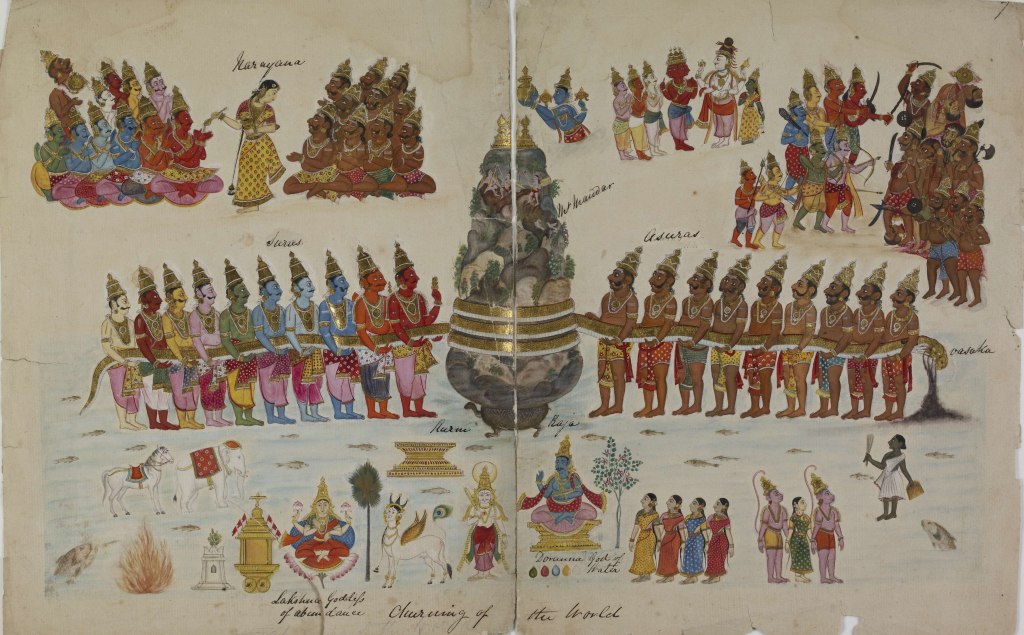 7
Narayana
Mt Mandar
Surus
Asuras
Vasuka
Kurm Raja
Dorunna God of
Water
Lakshme Goddess
of abundance
Churning of the World